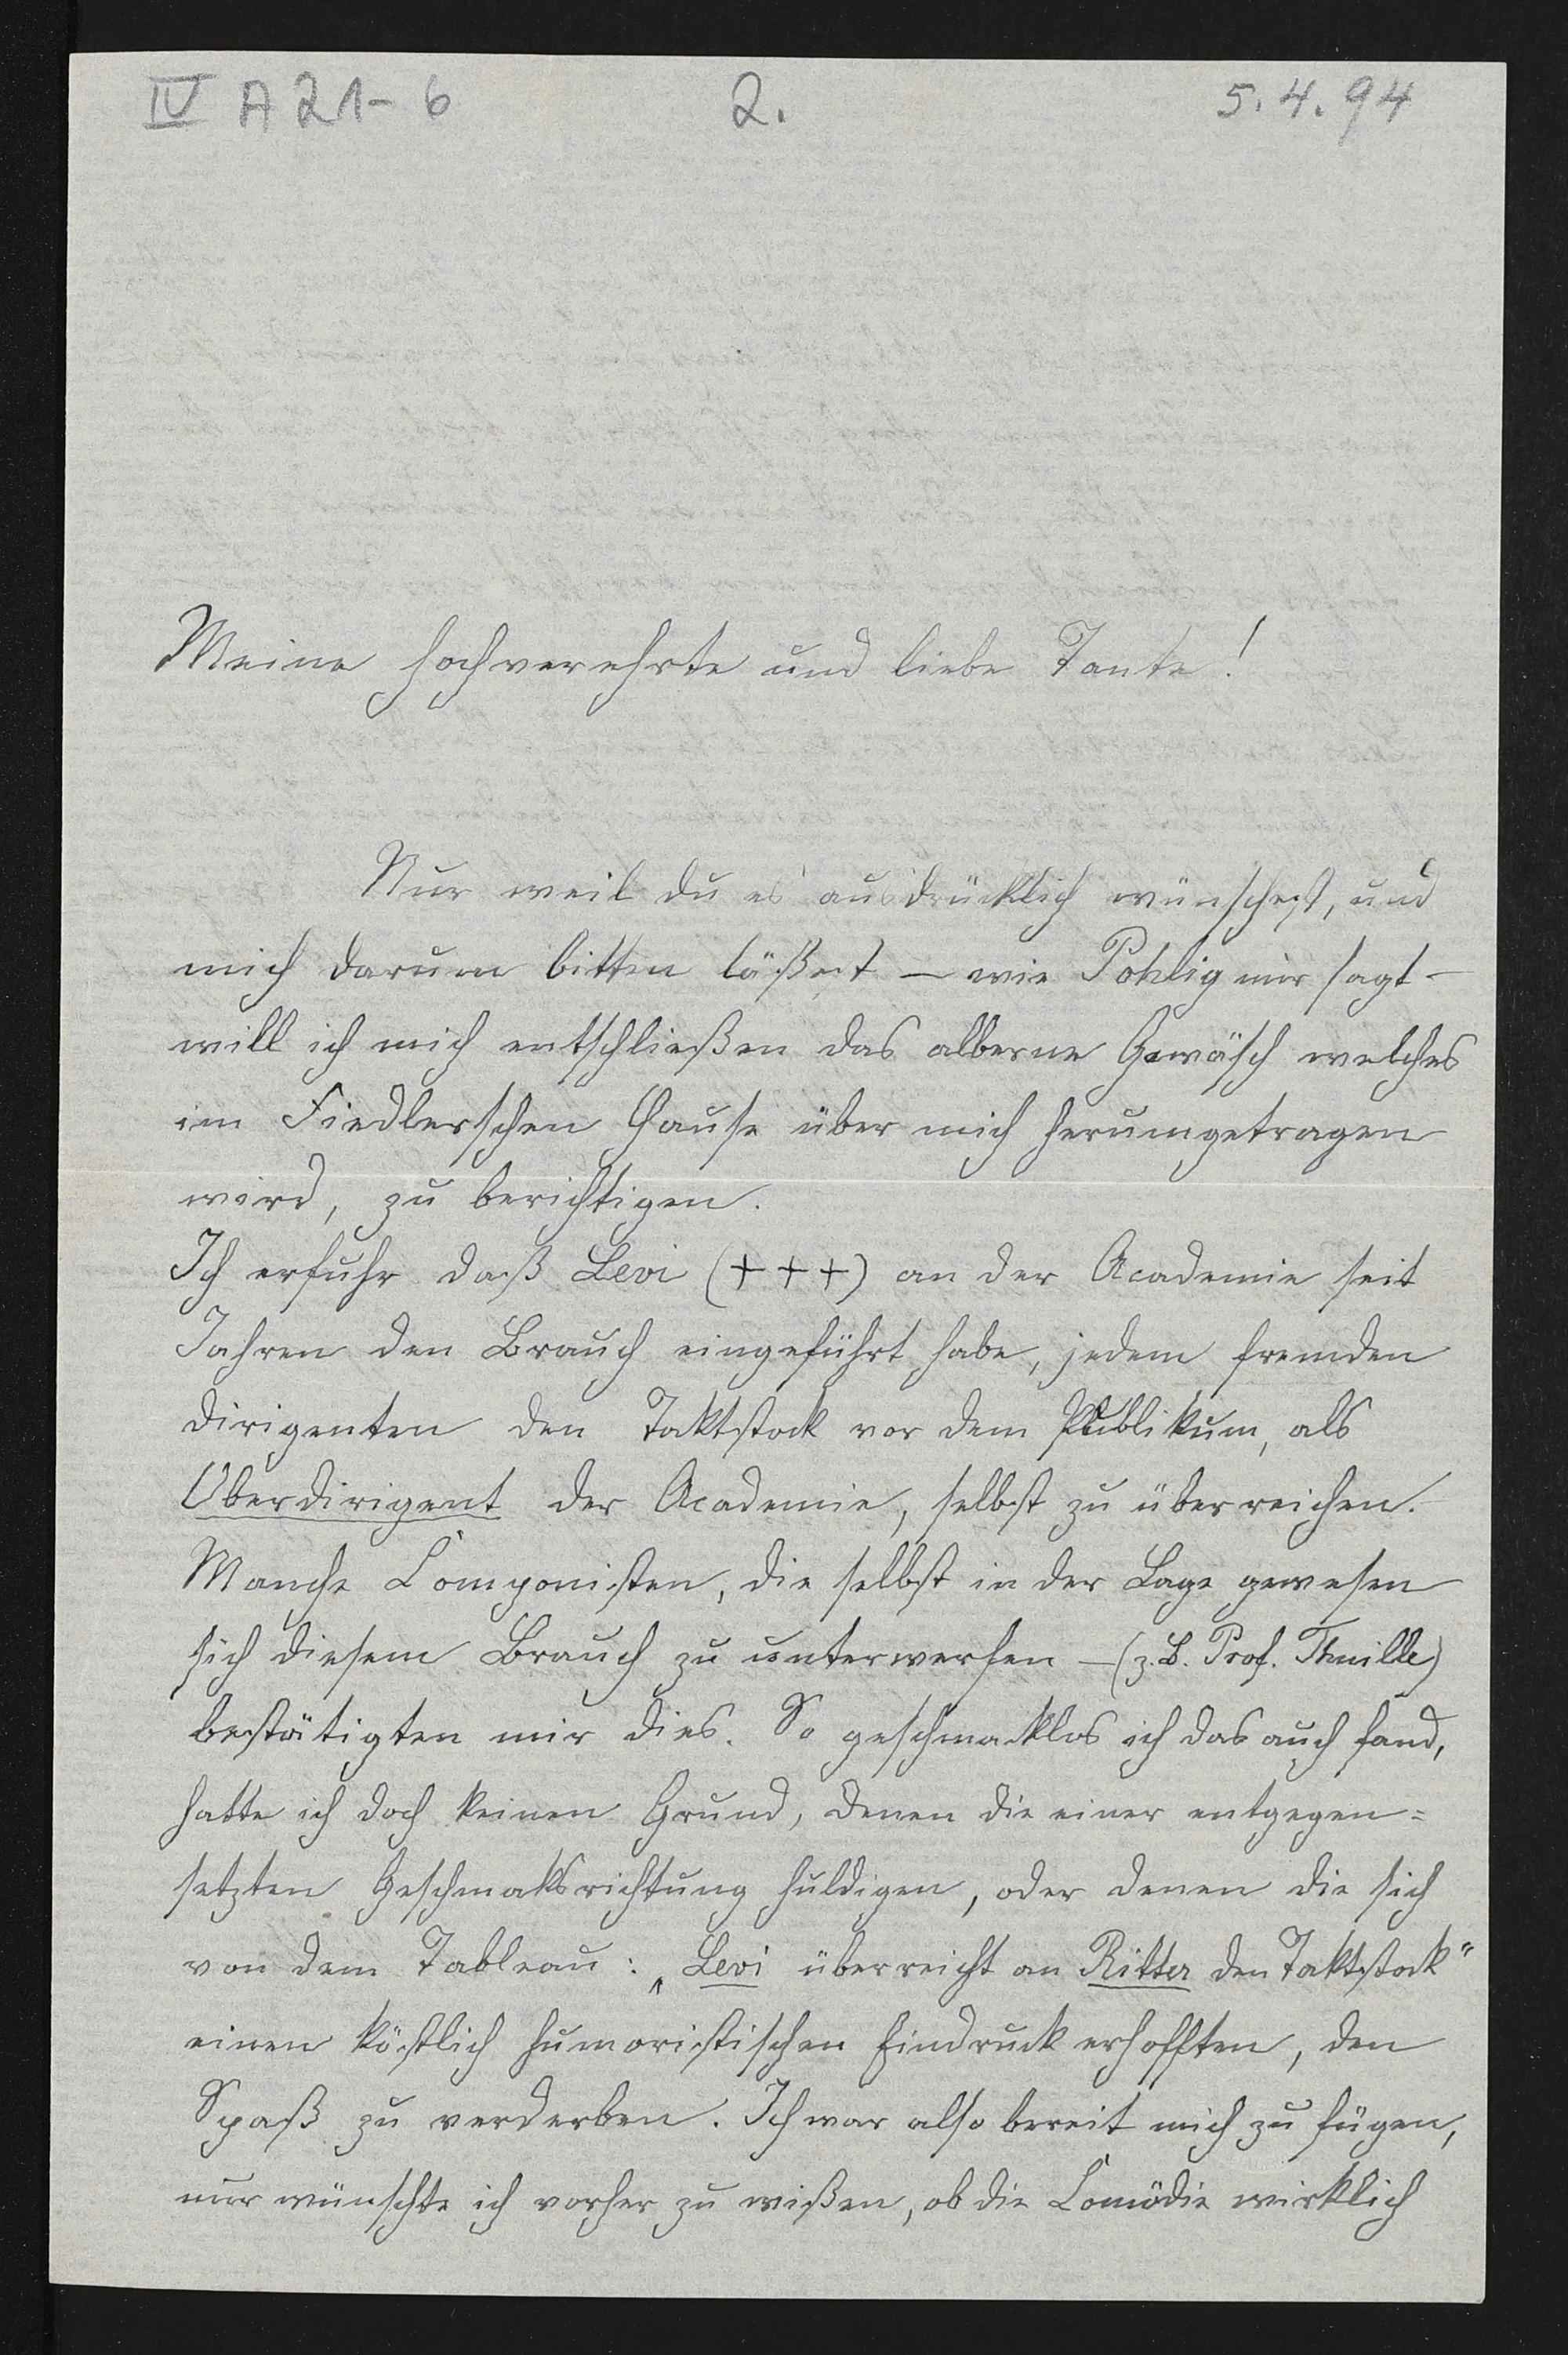 IV A 21-6 2. 5.4.94
Meine hochverehrte und liebe Tante!
Nur weil du es ausdrücklich wünschest, und
mich darum bitten läßest — wie Pohlig mir sagt —
will ich mich entschließen das alberne Gewäsch welches
im Fiedlerschen Hause über mich herumgetragen
wird, zu berichtigen.
Ich erfuhr daß Levi (+++) an der Academie seit
Jahren den Brauch eingeführt habe, jedem fremden
Dirigenten den Taktstock vor dem Publikum, als
Oberdirigent der Academie, selbst zu überreichen.
Manche Componisten, die selbst in der Lage gewesen
sich diesem Brauch zu unterwerfen — (z.B. Prof. Thuille)
bestätigten mir dies. So geschmacklos ich das auch fand,
hatte ich doch keinen Grund, denen die einer entgegen=
setzten Geschmaksrichtung huldigen, oder denen die sich
von dem Tableau: „Levi überreicht an Ritter den Taktstock"
einen köstlich humoristischen Eindruck erhofften, den
Spaß zu verderben. Ich war also bereit mich zu fügen,
nur wünschte ich vorher zu wißen, ob die Comödie wirklich